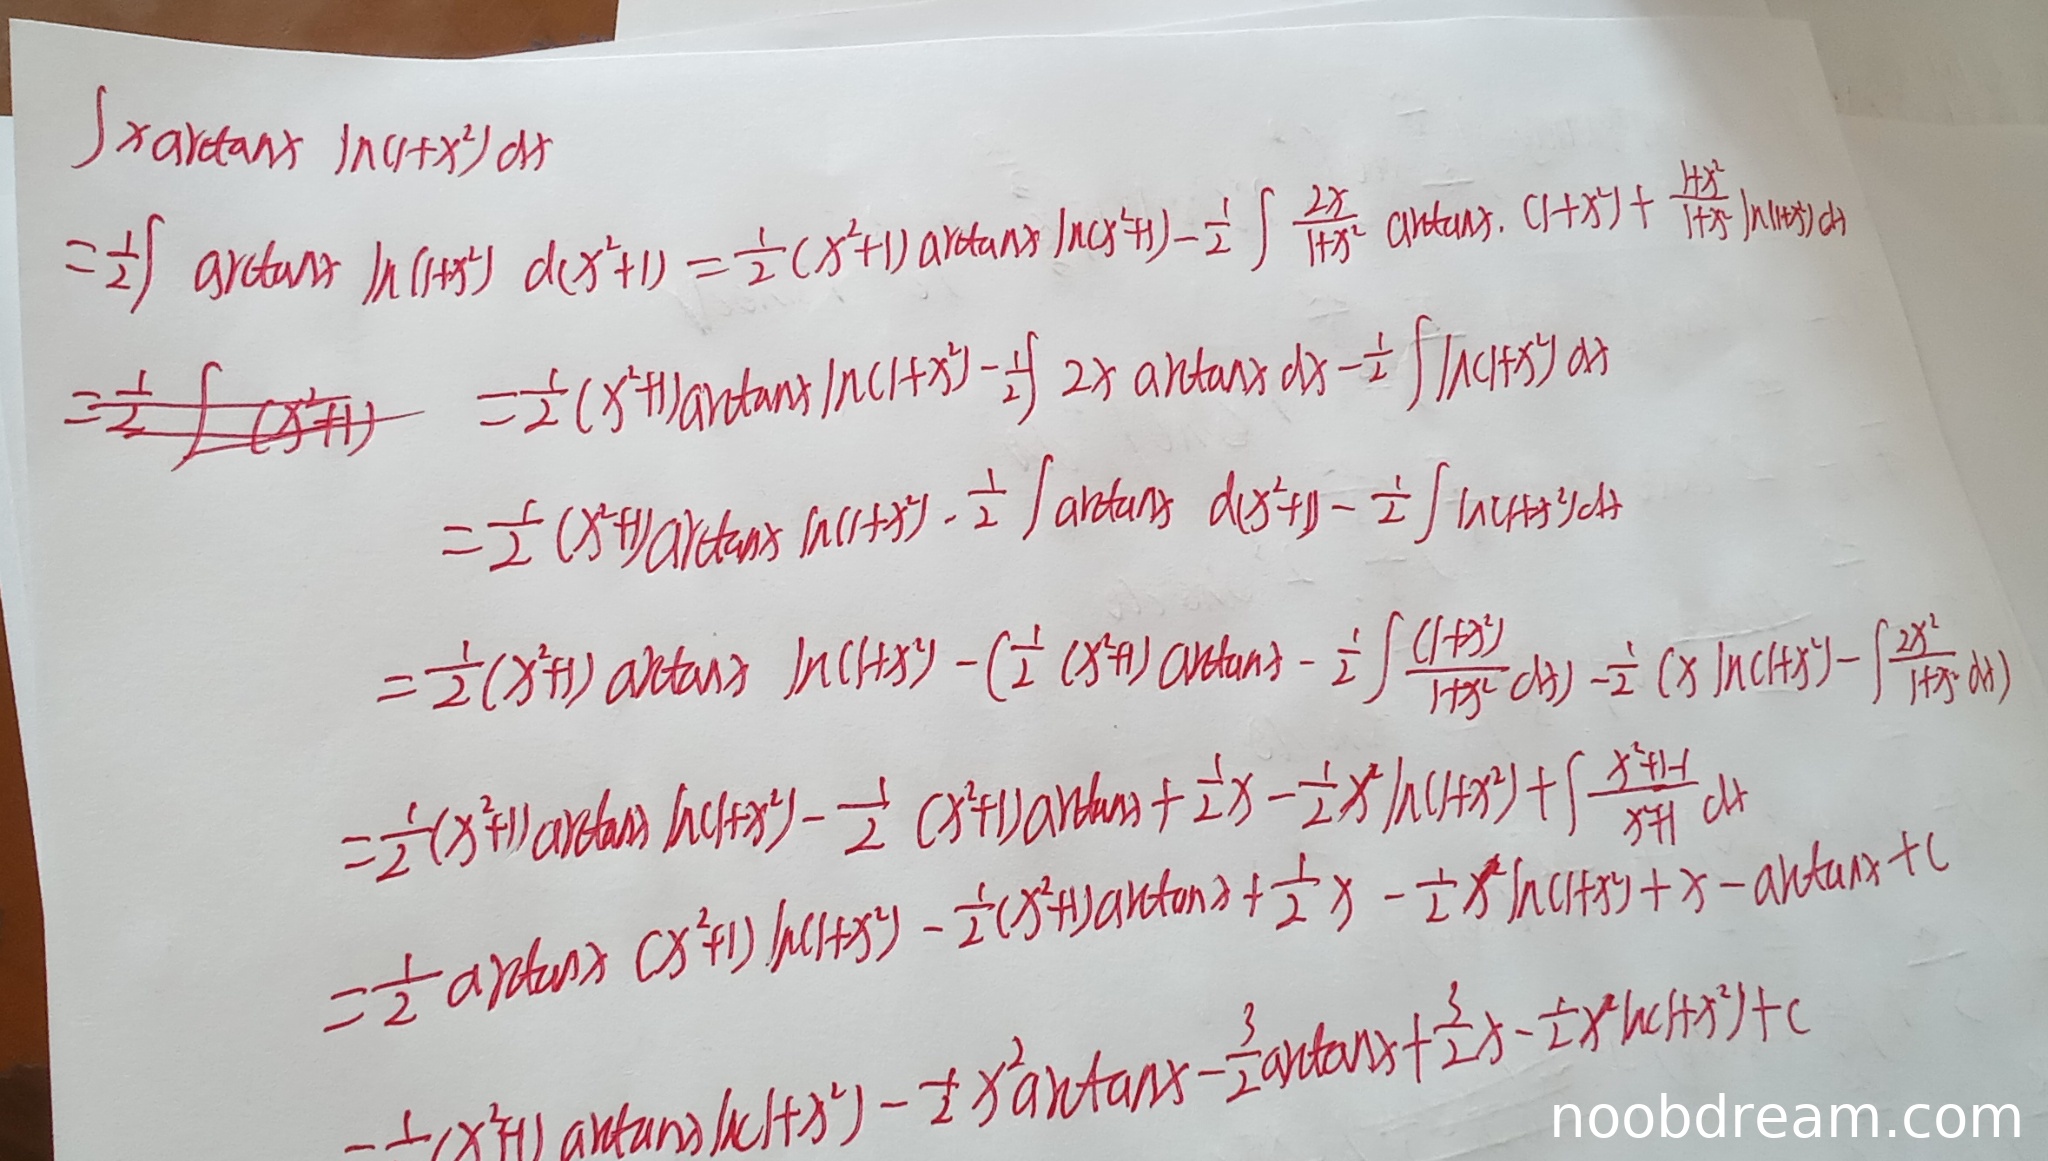 ∫ x arctanx ln(1+x²) dx
= 1/2 ∫ arctanx ln(1+x²) d(x²+1) = 1/2 (x²+1) arctanx ln(x²+1) - 1/2 ∫ 2x/(1+x²) arctanx · (1+x²) + (1+x²)/(1+x²) ln(1+x²) dx
= 1/2 ∫ (x²+1) = 1/2 (x²+1) arctanx ln(1+x²) - 1/2 ∫ 2x arctanx dx - 1/2 ∫ ln(1+x²) dx
= 1/2 (x²+1) arctanx ln(1+x²) - 1/2 ∫ arctanx d(x²+1) - 1/2 ∫ ln(1+x²) dx
= 1/2 (x²+1) arctanx ln(1+x²) - (1/2 (x²+1) arctanx - 1/2 ∫ (1+x²)/(1+x²) dx) - 1/2 (x ln(1+x²) - ∫ 2x²/(1+x²) dx)
= 1/2 (x²+1) arctanx ln(1+x²) - 1/2 (x²+1) arctanx + 1/2 x - 1/2 x ln(1+x²) + ∫ (x²+1-1)/(x²+1) dx
= 1/2 arctanx (x²+1) ln(1+x²) - 1/2 (x²+1) arctanx + 1/2 x - 1/2 x ln(1+x²) + x - arctanx + C
= 1/2 (x²+1) arctanx ln(1+x²) - 1/2 x² arctanx - 3/2 arctanx + 3/2 x - 1/2 x ln(1+x²) + C
noobdream.com